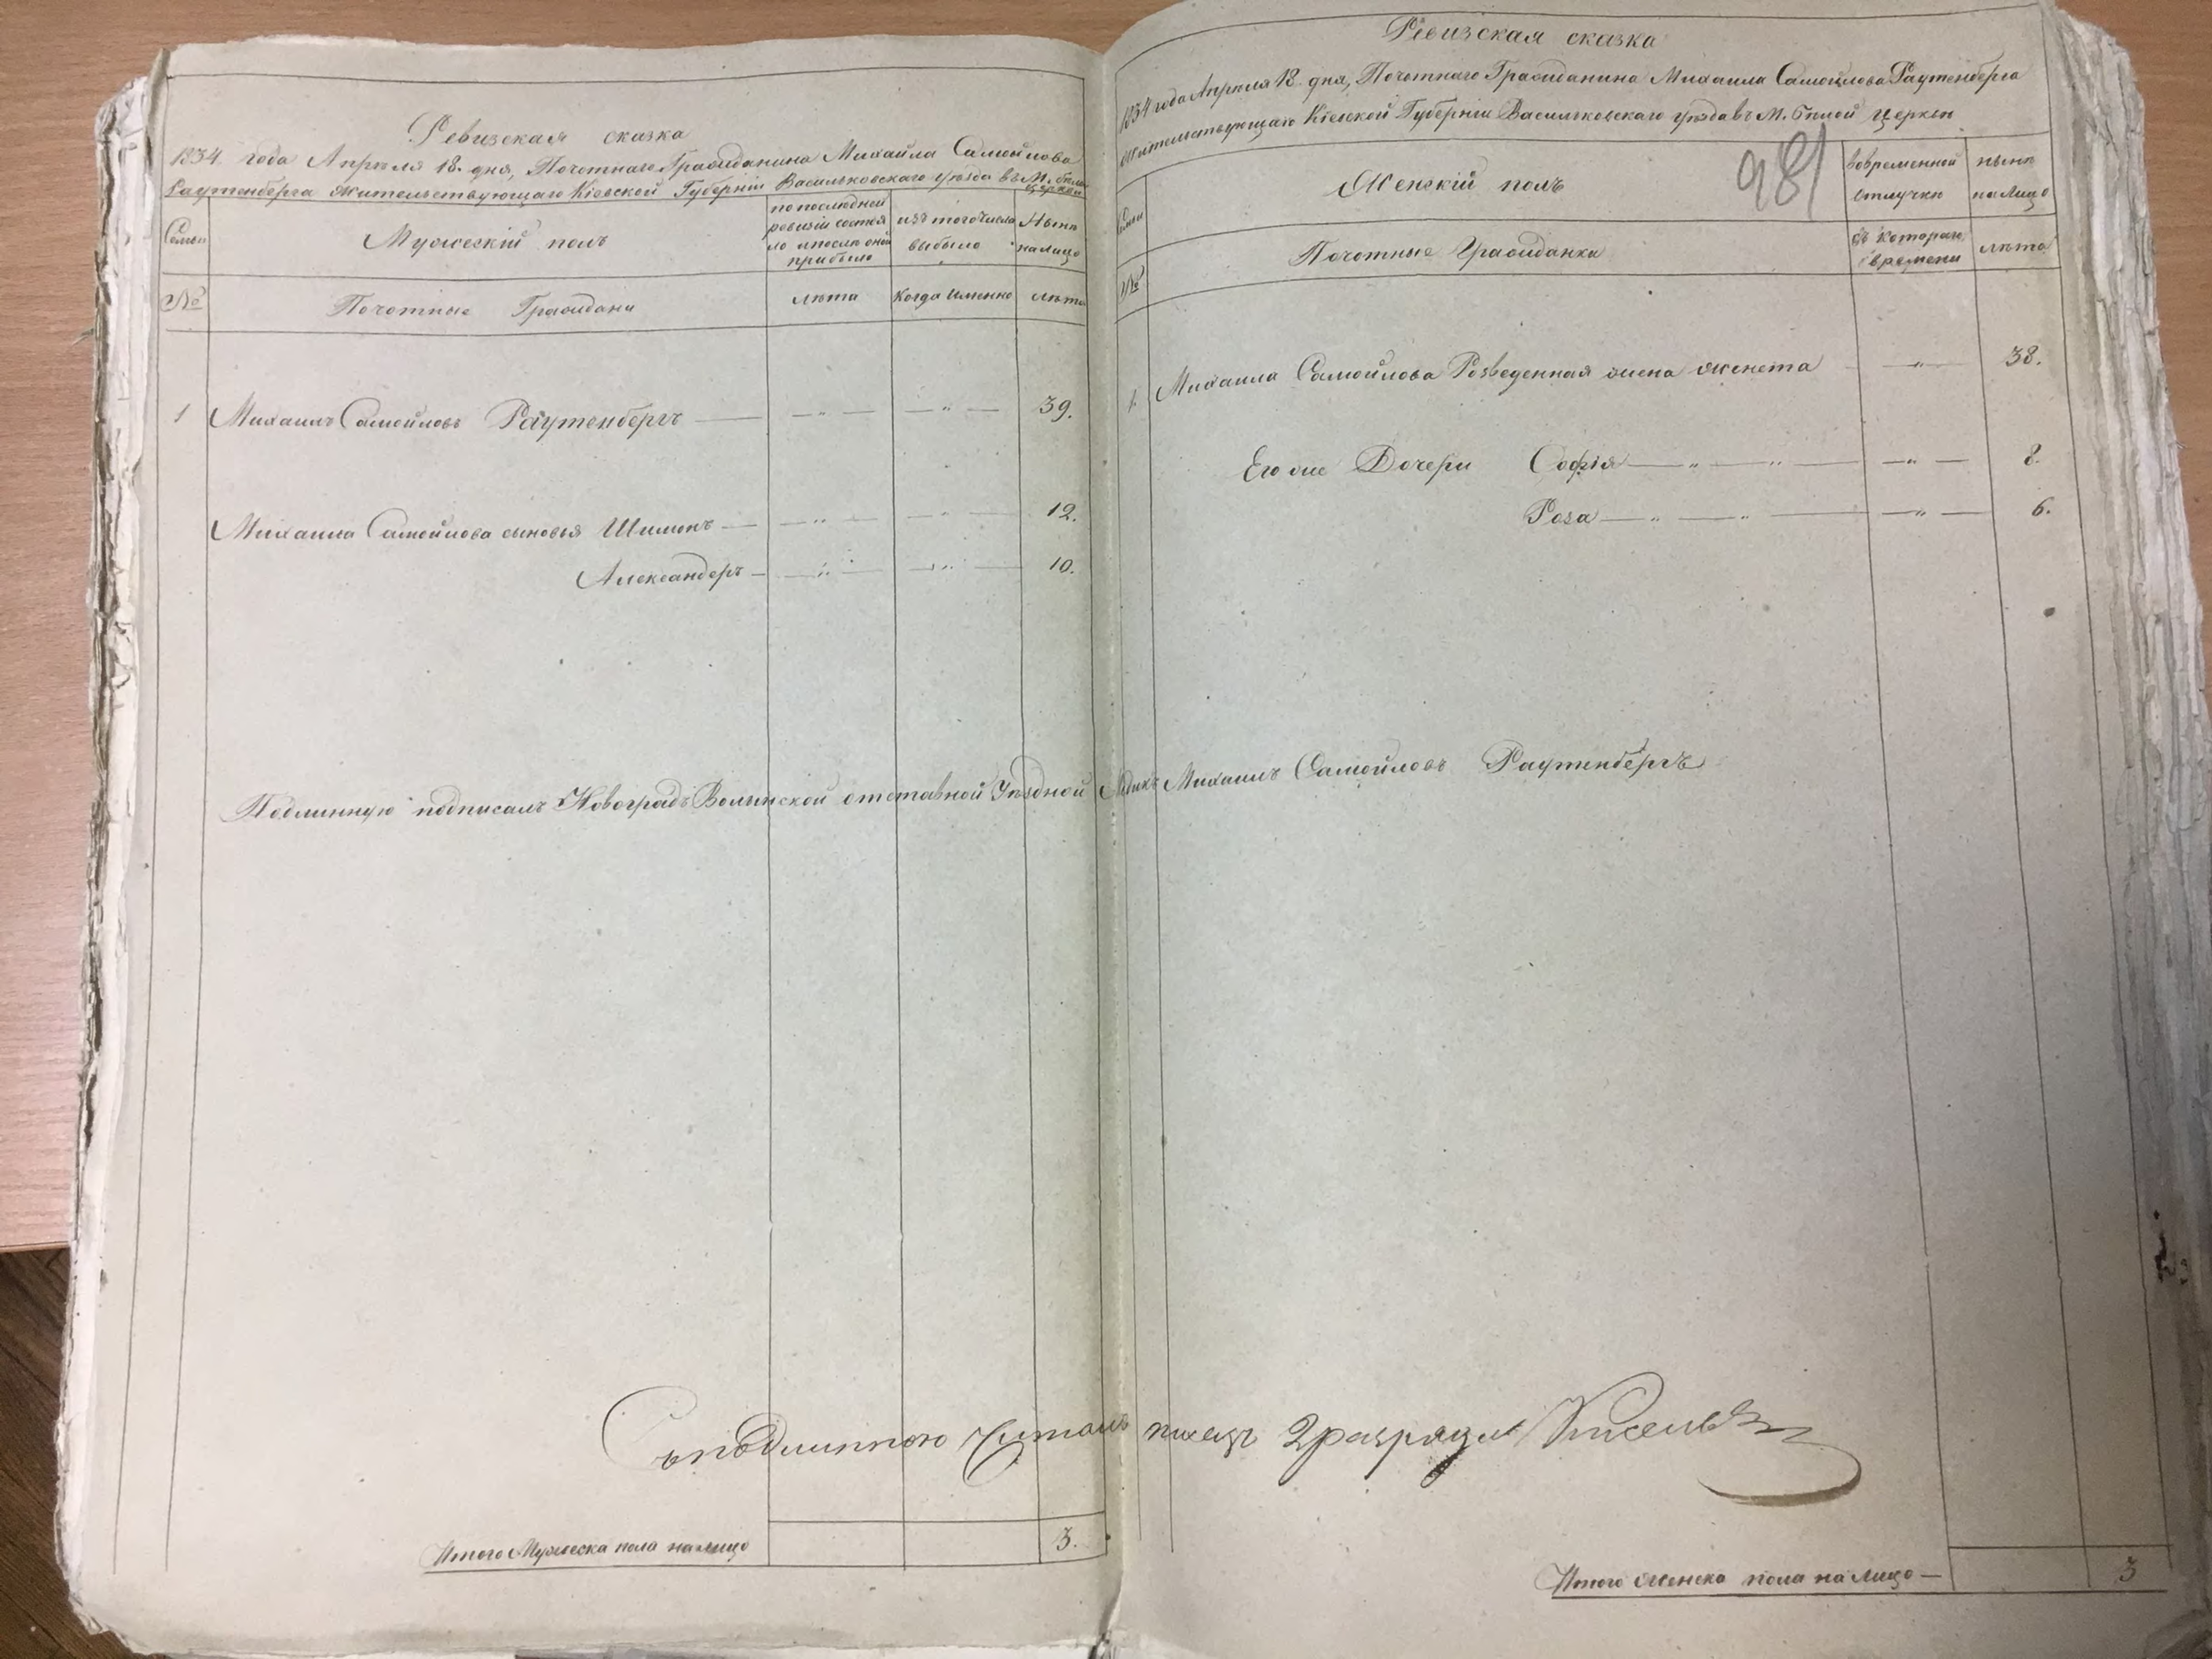 Ревизская сказка
1834 года Апреля 18. дня, Почотнаго Гражданина Михайла Самойлова
Раутенберга жительствующаго Кіевской Губерніи Васильковскаго уѣзда въ М. белой
церкви
Семьи
Мужескій полъ
по последней
ревизіи состоя
ло и после оной
прибыло
изъ того числа
выбыло
Нынѣ
на лицо
№
Почотные Граждани
лѣта
Когда именно
лѣта
1 Михаилъ Самойловъ Раутенбергъ — " — — " — 39.
Михаила Самойлова сыновья Шимонъ — " — — " — 12.
Александеръ — " — — " — 10.
Подлинную подписалъ Новоградъ Волынской отставной Уѣздной Михаилъ Самойловъ Раутенбергъ
Съ подлинною читалъ писецъ 2 разряда
Итого Мужеска пола на лицо 3.
Ревизская сказка
1834 года Апреля 18 дня, Почотнаго Гражданина Михаила Самойлова Раутенберга
жительствующаго Кіевской Губерніи Васильковскаго уѣзда въ М. белой церкви
981
Семьи
Женскій полъ
во временной
отлучки
нынѣ
на лицо
№
Почотные Гражданки
съ котораго
времени
лѣта
1. Михаила Самойлова Розведенная жена женета — " — 38.
Его же Дочери Софія — " — " — — " — 8.
Роза — " — " — — " — 6.
Итого женска пола на лицо — 3